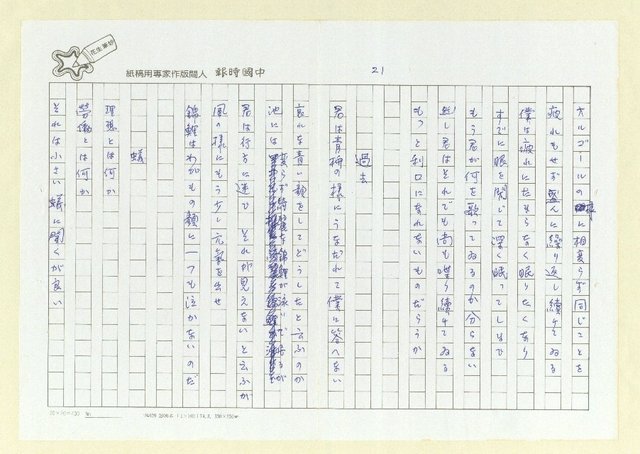 花生筆紗
中國時報 人間版作家專用稿紙
21
オルゴールの様に相変らず同じことを
疲れもせず尽んに繰り返し続けてゐる
僕は疲れにたまらなく眠りたくなり
すでに眼を閉じて深く眠ってしまひ
もう君が何を歌ってゐるのか分らない
然し君はそれでも尚も喋り続けてゐる
もっと利口になれないものだらうか
過去
君は青柳の様にうなだれて僕に答へない
哀れな青い顔をしてどうしたと云ふのか
池には変らず綺麗な錦鯉が泳いでゐるが
君は行方に迷ひ それが見えないと云ふが
風の様にもう少し元氣を出せ
錦鯉はわがもの顔に一つも泣かないのだ
蟻
理想とは何か
勞働とは何か
それは小さい蟻に聞くが良い